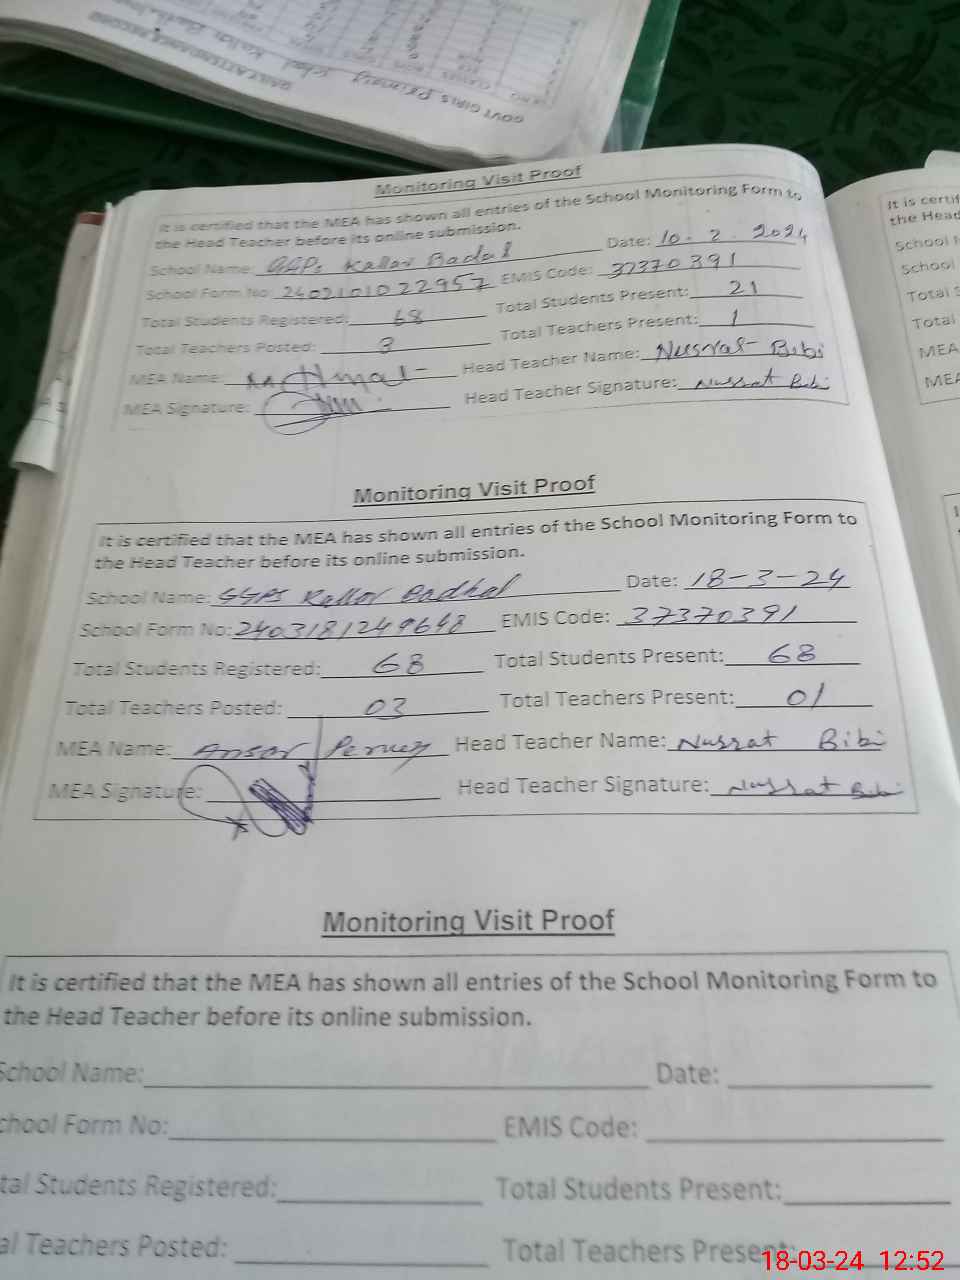 GOVT GIRLS Primary School Kallar
Monitoring Visit Proof
It is certified that the MEA has shown all entries of the School Monitoring Form to
the Head Teacher before its online submission.
School Name: GGPS Kallar Badal Date: 10-2-2024
School Form No: 2402101022957 EMIS Code: 37370391
Total Students Registered: 68 Total Students Present: 21
Total Teachers Posted: 3 Total Teachers Present: 1
MEA Name: Head Teacher Name: Nusrat Bibi
MEA Signature: Head Teacher Signature: Nussat Bibi
Monitoring Visit Proof
It is certified that the MEA has shown all entries of the School Monitoring Form to
the Head Teacher before its online submission.
School Name: GGPS Kallar Badhal Date: 18-3-24
School Form No: 2403181249648 EMIS Code: 37370391
Total Students Registered: 68 Total Students Present: 68
Total Teachers Posted: 03 Total Teachers Present: 01
MEA Name: Ansar Pervez Head Teacher Name: Nussat Bibi
MEA Signature: Head Teacher Signature: Nussat Bibi
Monitoring Visit Proof
It is certified that the MEA has shown all entries of the School Monitoring Form to
the Head Teacher before its online submission.
School Name: Date:
chool Form No: EMIS Code:
tal Students Registered: Total Students Present:
al Teachers Posted: Total Teachers Present:
It is certif
the Head
School N
School
Total S
Total
MEA
MEA
18-03-24 12:52